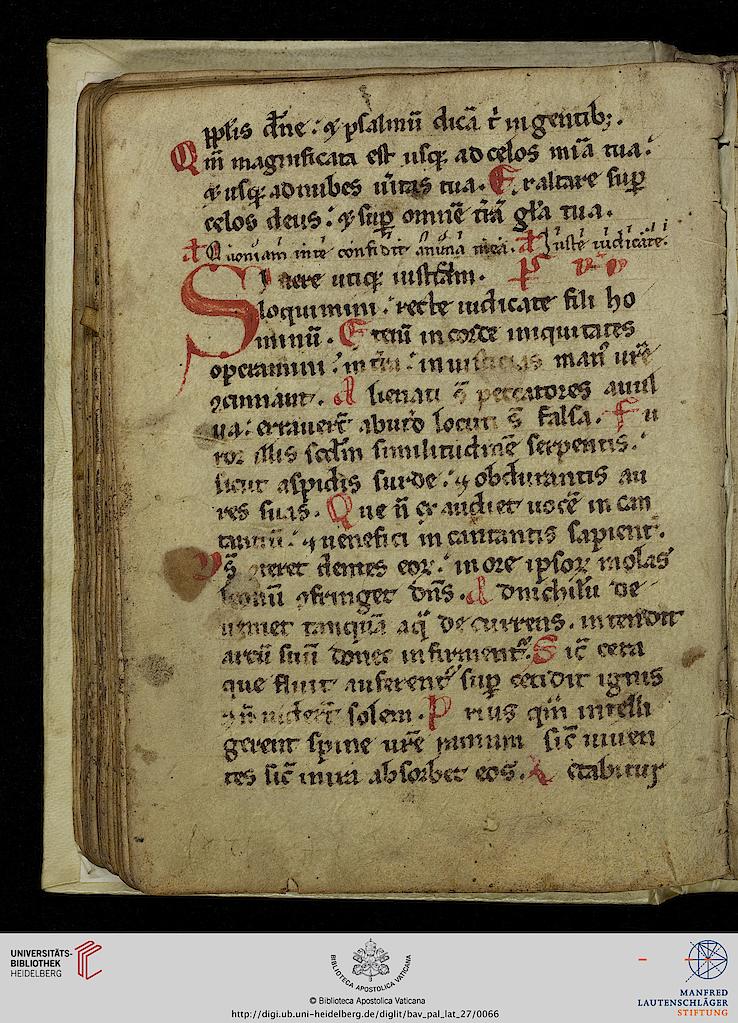 pplis dñe : ⁊ psalmū dicā t' in gentib;.
Qm̄ magnificata est usq; ad celos mia tua :
⁊ usq; ad nubes ūitas tua . Exaltare sup
celos deus : ⁊ sup omnē trā gła tua .
Quoniam in te confidit anima mea . Juste iudicate .
Si uere utiq; iustitiam . P
loquimini : recte iudicate fili ho
minū . Etenī in corde iniquitates
operamini : in tra : manꝰ urē
ꝯcinnant . Alienati s̄ peccatores a uul
ua : errauert ab uto locuti s̄ falsa . Fu
ror illis scdm similitudinē serpentis :
sicut aspidis surde : ⁊ obdurantis au
res suas . Que ñ exaudiet uocē in can
tantiū : ⁊ uenefici in cantantis sapient .
Ds̄ ꝯteret dentes eor : in ore ipsor molas
leonū ꝯfringet dn̄s . Ad nichilū de
uenient tanquā aq̄ decurrens . intendit
arcū suū donec infirment . Sic cera
que fluit auferent sup cecidit ignis
⁊ ñ uidert solem . Prius qm̄ intelli
gerent spine urē ramnum sic uiuen
tes sic in ira absorbet eos . Letabitur
UNIVERSITÄTS-
BIBLIOTHEK
HEIDELBERG
BIBLIOTECA APOSTOLICA VATICANA
© Biblioteca Apostolica Vaticana
http://digi.ub.uni-heidelberg.de/diglit/bav_pal_lat_27/0066
MANFRED
LAUTENSCHLÄGER
STIFTUNG